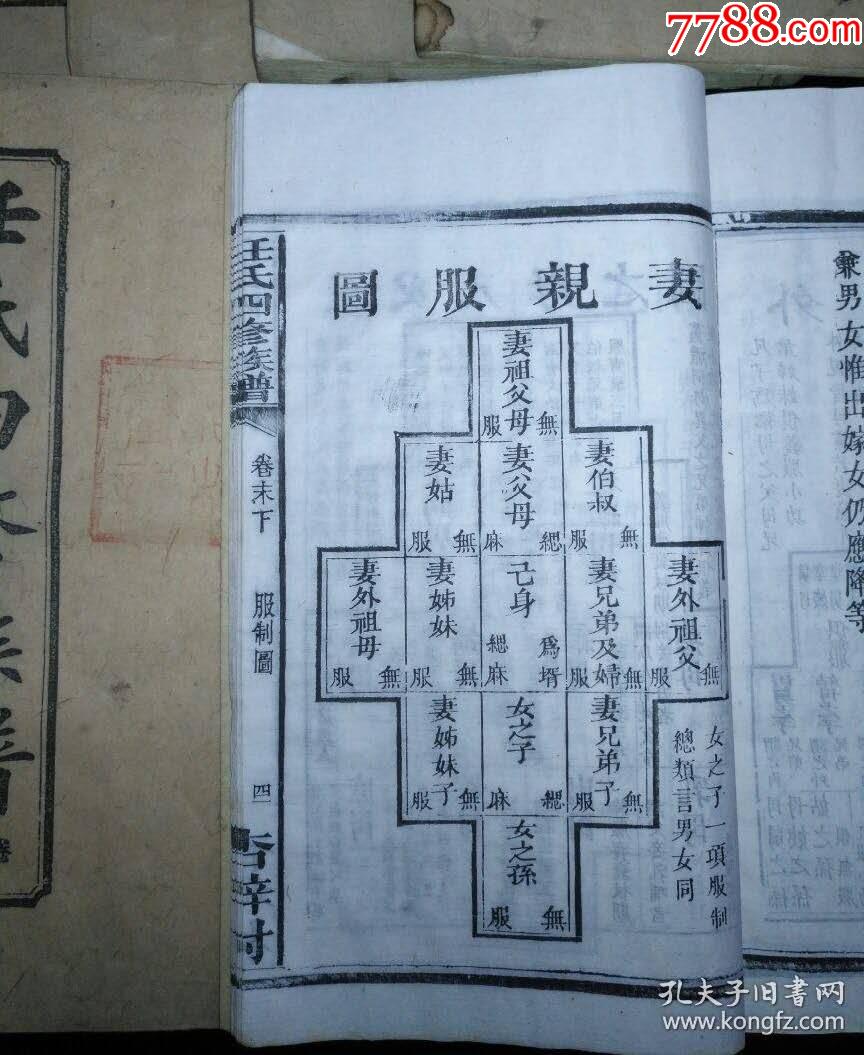 7788.com
兼男女惟出嫁女仍應降等
妻親服圖
妻祖父母
無服
妻伯叔
無服
妻父母
緦麻
妻姑
無服
妻外祖父
無服
妻兄弟及婦
無服
己身
爲壻緦麻
妻姊妹
無服
妻外祖母
無服
妻兄弟子
無服
女之子
緦麻
妻姊妹子
無服
女之孫
無服
女之子一項服制
總類言男女同
任氏四修族譜
卷末下
服制圖
四
孔夫子旧书网
www.kongfz.com